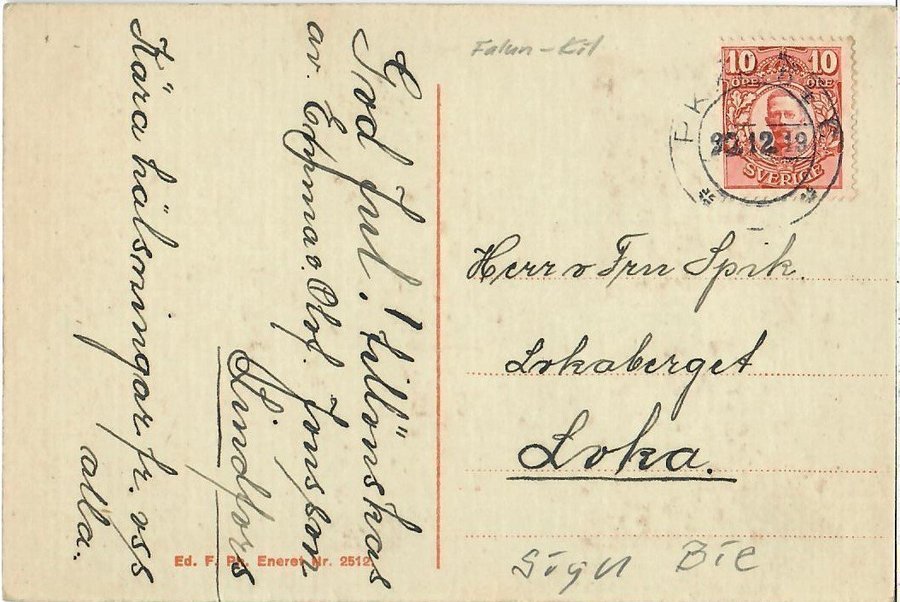 God Jul. tillönskas
av. Emma o. Olof. Jonsson
Lindfors
Kära hälsningar fr. oss
alla.
Falun - Kil
10 10
ÖRE ÖRE
SVERIGE
PK
12.19
Herr o Fru Spik.
Lokaberget
Loka.
Ed. F. Ph. Eneret Nr. 2512.
Sign BiC